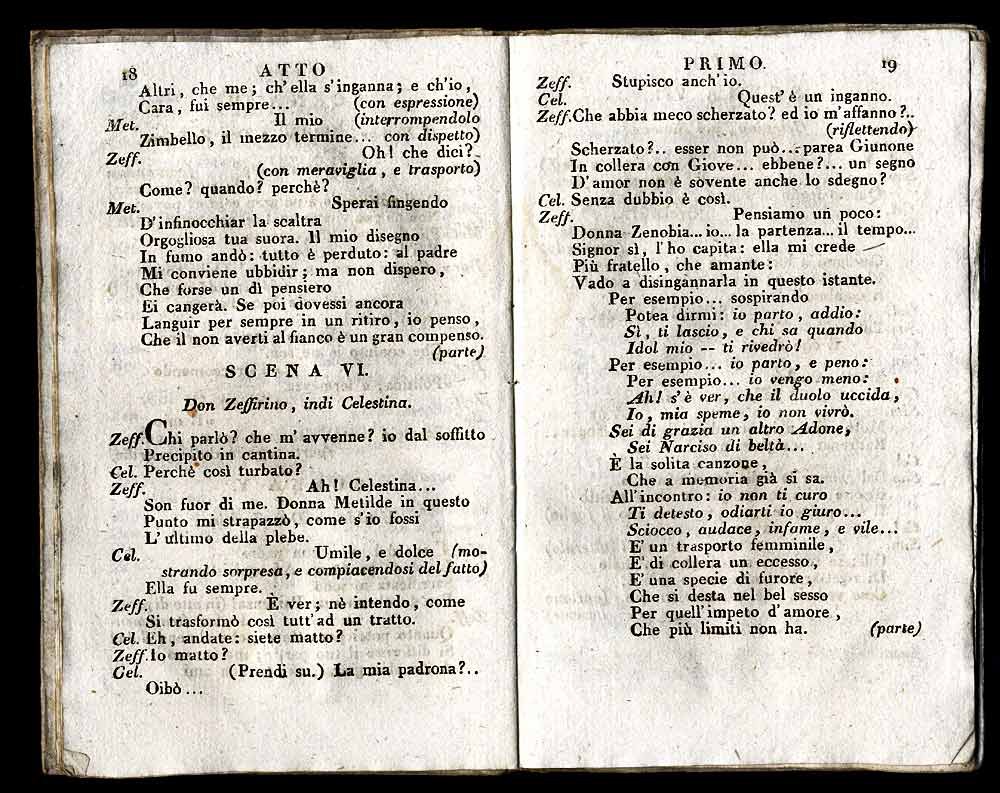 18 ATTO
Altri, che me; ch'ella s'inganna; e ch'io,
Cara, fui sempre... (con espressione)
Met. Il mio (interrompendolo
Zimbello, il mezzo termine... con dispetto)
Zeff. Oh! che dici?
(con meraviglia, e trasporto)
Come? quando? perchè?
Met. Sperai fingendo
D'infinocchiar la scaltra
Orgogliosa tua suora. Il mio disegno
In fumo andò: tutto è perduto: al padre
Mi conviene ubbidir; ma non dispero,
Che forse un dì pensiero
Ei cangerà. Se poi dovessi ancora
Languir per sempre in un ritiro, io penso,
Che il non averti al fianco è un gran compenso.
(parte)
SCENA VI.
Don Zeffirino, indi Celestina.
Zeff. Chi parlò? che m'avvenne? io dal soffitto
Precipito in cantina.
Cel. Perchè così turbato?
Zeff. Ah! Celestina...
Son fuor di me. Donna Metilde in questo
Punto mi strapazzò, come s'io fossi
L'ultimo della plebe.
Cel. Umile, e dolce (mo-
strando sorpresa, e compiacendosi del fatto)
Ella fu sempre.
Zeff. È ver; nè intendo, come
Si trasformò così tutt'ad un tratto.
Cel. Eh, andate: siete matto?
Zeff. Io matto?
Cel. (Prendi su.) La mia padrona?..
Oibò...
PRIMO. 19
Zeff. Stupisco anch'io.
Cel. Quest'è un inganno.
Zeff. Che abbia meco scherzato? ed io m'affanno?..
(riflettendo)
Scherzato?.. esser non può...: parea Giunone
In collera con Giove... ebbene?... un segno
D'amor non è sovente anche lo sdegno?
Cel. Senza dubbio è così.
Zeff. Pensiamo un poco:
Donna Zenobia... io... la partenza... il tempo...
Signor sì, l'ho capita: ella mi crede
Più fratello, che amante:
Vado a disingannarla in questo istante.
Per esempio... sospirando
Potea dirmi: io parto, addio:
Sì, ti lascio, e chi sa quando
Idol mio -- ti rivedrò!
Per esempio... io parto, e peno:
Per esempio... io vengo meno:
Ah! s'è ver, che il duolo uccida,
Io, mia speme, io non vivrò.
Sei di grazia un altro Adone,
Sei Narciso di beltà...
È la solita canzone,
Che a memoria già si sa.
All'incontro: io non ti curo
Ti detesto, odiarti io giuro...
Sciocco, audace, infame, e vile...
E' un trasporto femminile,
E' di collera un eccesso,
E' una specie di furore,
Che si desta nel bel sesso
Per quell'impeto d'amore,
Che più limiti non ha. (parte)